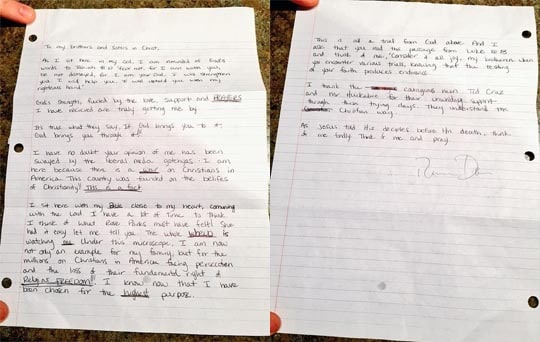 To my brothers and sisters in Christ,
As I sit here in my cell, I am reminded of God's
words to Fear not for I am with you,
be not dismayed, for I am your God, I will strengthen
you, I will help you, I will uphold you with my
righteous hand.
God's strength, fueled by the love, support and PRAYERS
I have recieved are truly getting me by.
It's true what they say, If God brings you to it,
God brings you through it!
I have no doubt your opinion of me has been
swayed by the liberal media gotchyas. I am
here because there is a war on Christians in
America. This country was founded on the belifes
of Christianity! This is a fact.
I sit here with my Bible close to my heart, communing
with the Lord I have a lot of time to think.
I think of what Rosa Parks must have felt! She
had it easy let me tell you. The whole WORLD is
watching me under this microscope, I am now
not only an example for my family, but for the
millions on Christians in America facing persecution
and the loss of their fundamental right of
Religious FREEDOM! I know now that I have
been chosen for the highest purpose.
This is all a trial from God above. And I
ask that you read this passage from Luke
and think of me, "Consider it all joy, my brethren when
you encounter various trials, knowing that the testing
of your faith produces endurance.
I thank the caring men Ted Cruz
and Mr. Huckabee for their unwielding support
through them trying days. They understand the
Christian way.
As Jesus told His decibles before His death, think
of me finally. Think of me and pray.